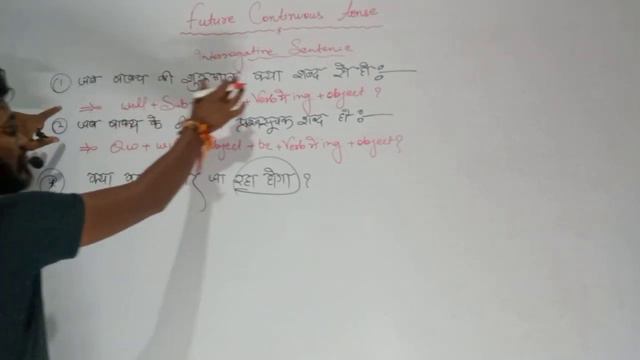 Future Continuous tense
Interrogative Sentence
① जब वाक्य की शुरुआत क्या शब्द से हो :-
⇒ will + Sub + Verb में ing + object ?
② जब वाक्य के प्रश्नसूचक शब्द हो :-
⇒ Qw + + be + Verb में ing + object ?
क्या जा रहा होगा ?